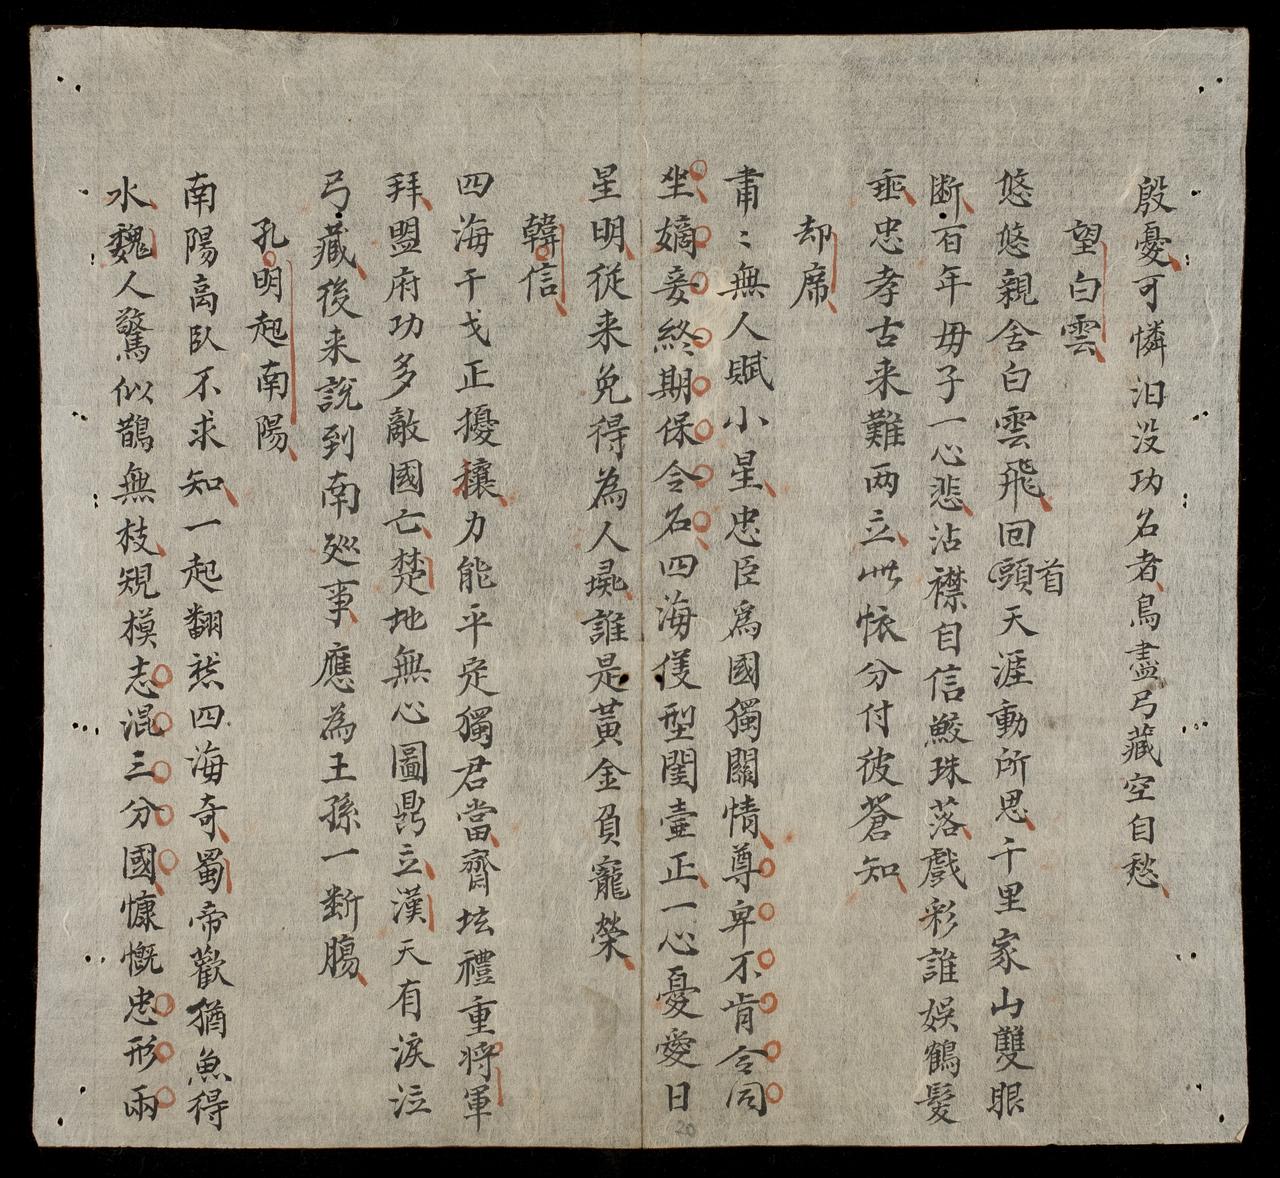 殷憂可憐汨没功名者鳥盡弓藏空自愁
望白雲
悠悠親舍白雲飛回頭首天涯動所思千里家山雙眼
断百年毋子一心悲沾襟自信鮫珠落戲彩誰娱鶴髪
垂忠孝古来難两立此恢分付彼蒼知
却席
肅〻無人賦小星忠臣為國獨關情尊卑不肯令同
坐嫡妾終期保令名四海儀型閨壼正一心憂愛日
星明従来免得為人彘誰是黃金負寵榮
韓信
四海干戈正擾穰力能平定獨君當齋坛禮重将軍
拜盟府功多敵國亡楚地無心圖鼎立漢天有淚泣
弓藏後来說到南廵事應為王孫一断腸
孔明起南陽
南陽高臥不求知一起翻然四海奇蜀帝歡猶魚得
水魏人驚似鵲無枝規模志混三分國慷慨忠形兩
20